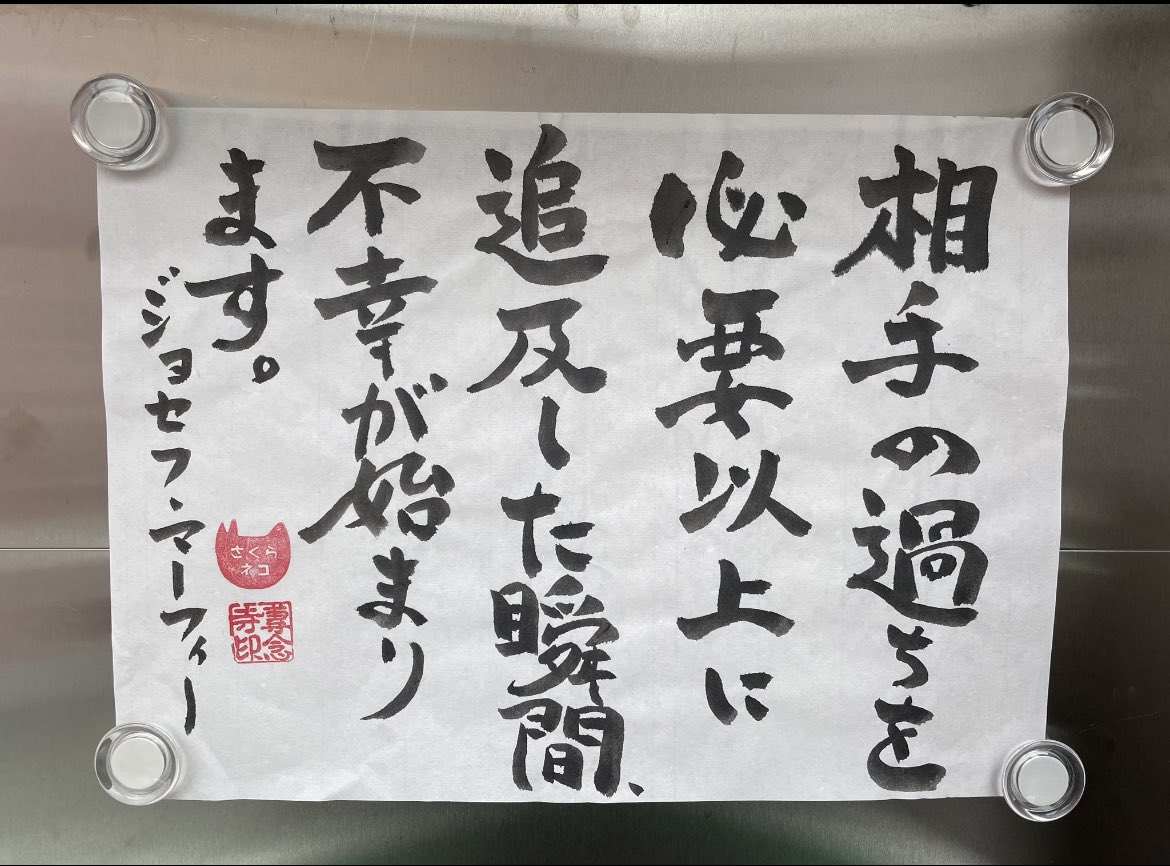 相手の過ちを
必要以上に
追及した瞬間、
不幸が始まり
ます。
ジョセフ・マーフィー
さくら
ネコ
尊念
寺印